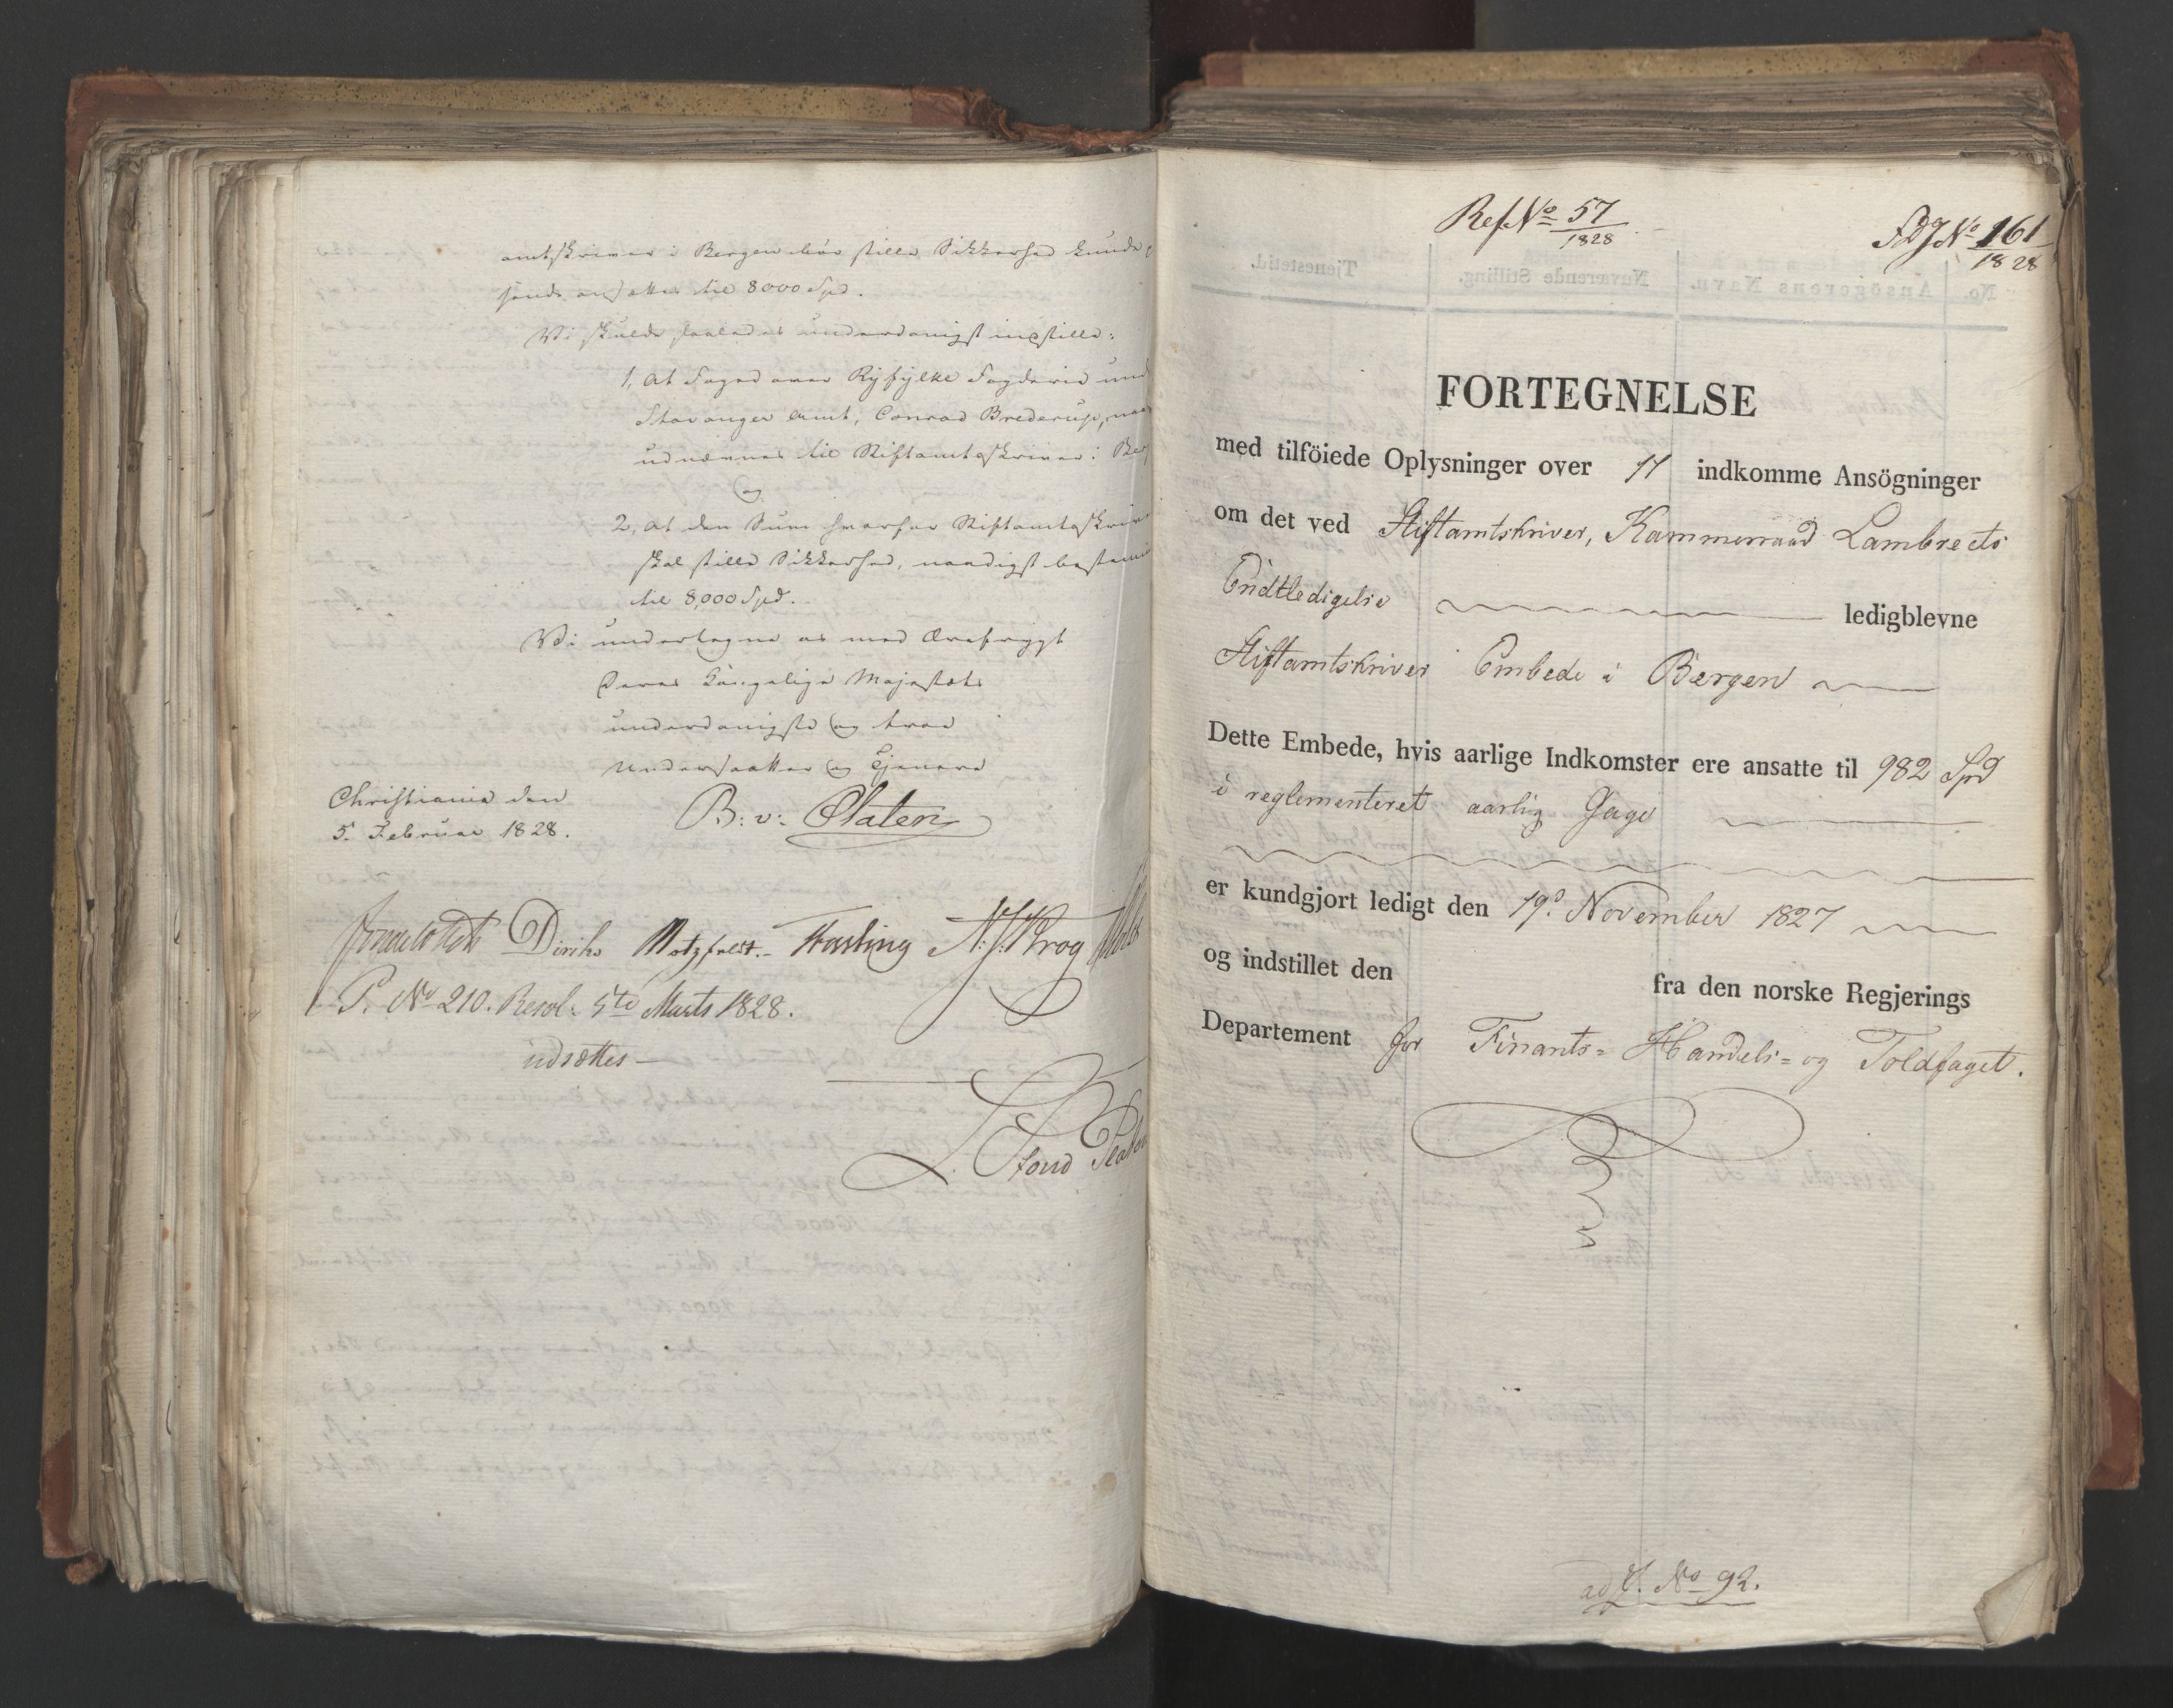 amtskriver i Bergen bør stille Sikkerhed kunde
ansættes til 8000 Spd.
Vi skulde saaledes underdanigst indstille:
1, at Foged over Ryfylke Fogderie und
Stavanger Amt, Conrad Brederup, naa
udnævnes til Stiftamtsskriver i Ber
og
2, at den Sum hvorfor Stiftamtsskriv
skal stille Sikkerhed, naadigst bestem
til 8,000 Spd.
Vi undertegne os med Ærefrygt
Deres Kongelige Majestæts
underdanigste og troe
Undersaatter og Tjenere
Christiania den
5. Februar 1828.
B: v: Platen
Diriks Motzfeldt. Fasting N: J: Krog
P. No 210. Resol: 5te Marts 1828.
udsættes
Ref No 57
1828
FDJ No 161
1828
FORTEGNELSE
med tilföiede Oplysninger over 17 indkomme Ansögninger
om det ved Stiftamtskriver, Kammerraad Lambrects
Endtledigelse ledigblevne
Stiftamtskriver Embede i Bergen
Dette Embede, hvis aarlige Indkomster ere ansatte til 982 Spd
i reglementeret aarlig Gage
er kundgjort ledigt den 19d November 1827
og indstillet den fra den norske Regjerings
Departement for Finants- Handels- og Toldfaget.
ad P. No 92.